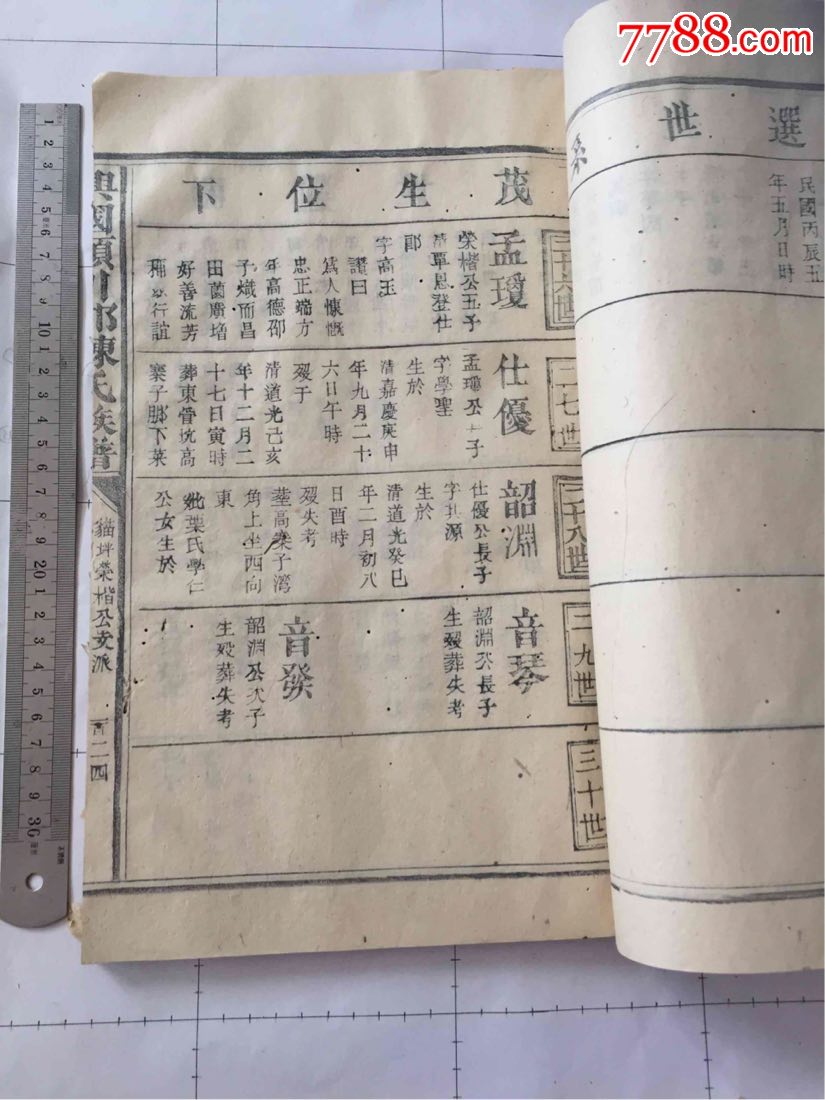 7788.com
選世系
民國丙辰五
年五月日時
茂生位下
二十六世
孟瓊
榮楷公五子
清單恩登仕
郎
字高玉
讚曰
為人慷慨
忠正端方
年高德邵
子熾而昌
田園廣增
好善流芳
行誼
二七世
仕優
孟瓊公子
字學聖
生於
清嘉慶庚申
年九月二十
六日午時
歿于
清道光己亥
年十二月二
十七日寅時
葬東骨坑高
寨子腳下菜
二十八世
韶淵
仕優公長子
字其源
生於
清道光癸巳
年二月初八
日酉時
歿失考
葬高寨子湾
角上坐西向
東
妣葉氏學仁
公女生於
二九世
音琴
韶淵公長子
生歿葬失考
音發
韶淵公次子
生歿葬失考
三十世
興國潁川郡陳氏族譜
貓坪榮楷公支派
百二四